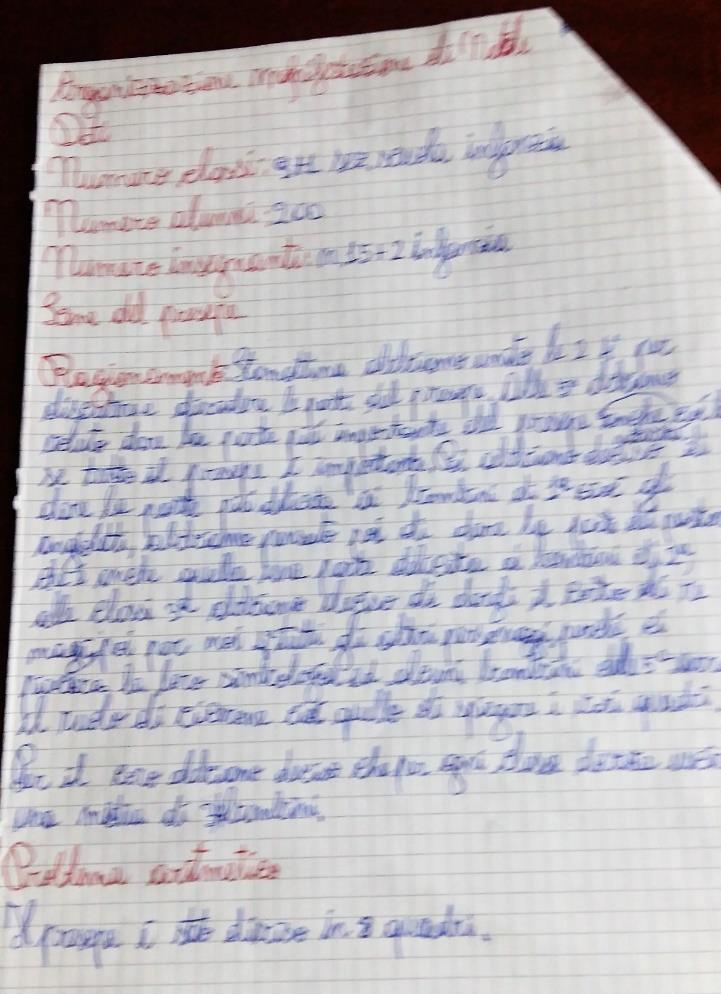 Organizzazione manifestazione di Natale
Dati
Numero classi: 9+1 sez scuola infanzia
Numero alunni: 200
Numero insegnanti: n 15+2 infanzia
Scene del presepe
Ragionamento Stamattina abbiamo unito le 2 per
discutere e decidere le parti del presepe. Alle 5e abbiamo
voluto dare la parte più importante del presepe anche
se tutto il presepe è importante. Poi abbiamo deciso di
dare la parte più dolce ai bambini di 1a cioè gli
angioletti, abbiamo pensato poi di dare la parte di
anche quella una parte ai bambini di 2a,
alle classi abbiamo deciso di dargli il ruolo di re
magi poi per noi tutti gli altri personaggi perché ci
piaceva la loro simbologia ad alcuni bambini
il ruolo di cioè quello di spiegare i vari quadri
Per il coro abbiamo deciso che per ogni classe
una di bambini.
Problema aritmetico
Il presepe è diviso in 8 quadri.